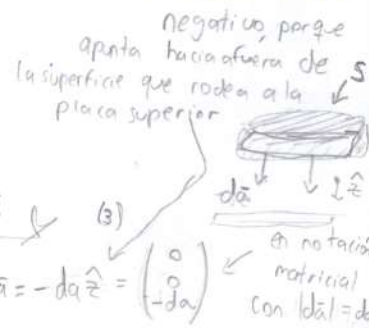 negativo, porque
apunta hacia afuera de
la superficie que rodea a la
placa superior
S
-dā ẑ
(3)
ā = -da ẑ = ( 0 0 -da )
en notació
matricial
con |dā| = da